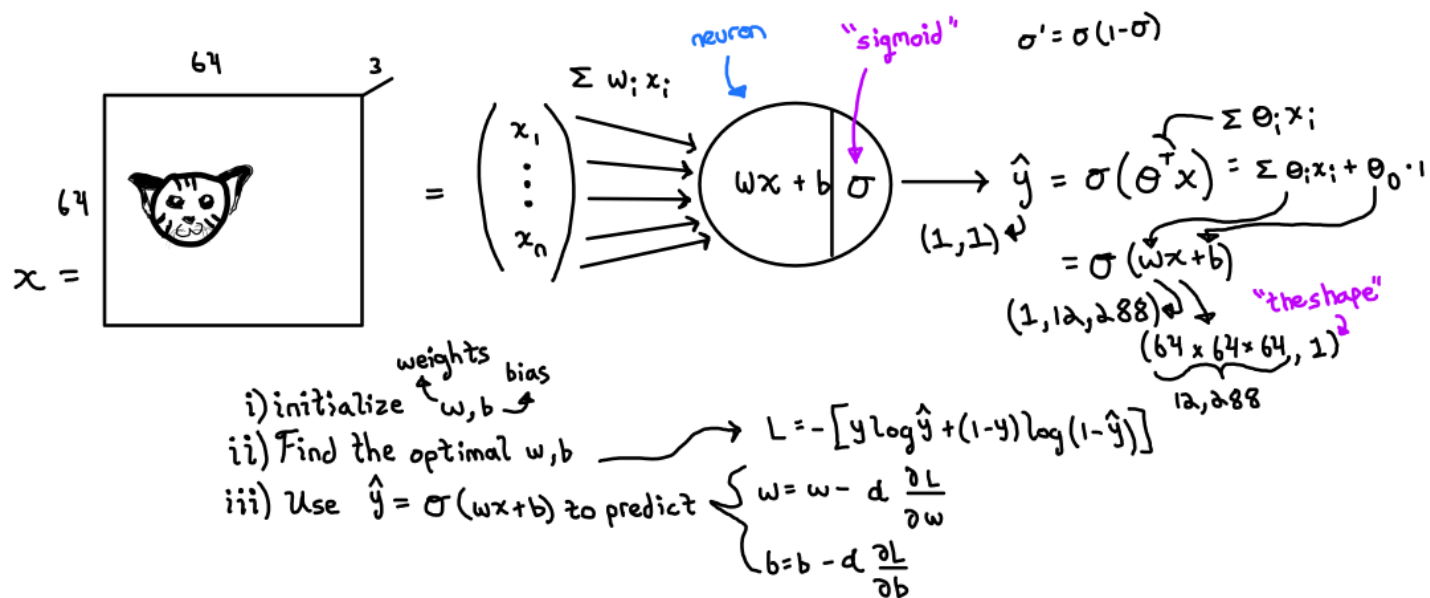 64
3
64
x =
=
x₁
⋮
xₙ
Σ wᵢ xᵢ
neuron
"sigmoid"
σ' = σ(1-σ)
wx + b | σ
ŷ = σ(θᵀx) = Σ θᵢxᵢ + θ₀·1
Σ θᵢ xᵢ
(1,1)
= σ(wx+b)
(1,12,288)
"the shape"
(64 × 64 × 64, 1)
12,288
weights
bias
i) initialize w,b
ii) Find the optimal w,b
L = -[y log ŷ + (1-y) log(1-ŷ)]
iii) Use ŷ = σ(wx+b) to predict
w = w - α ∂L/∂w
b = b - α ∂L/∂b